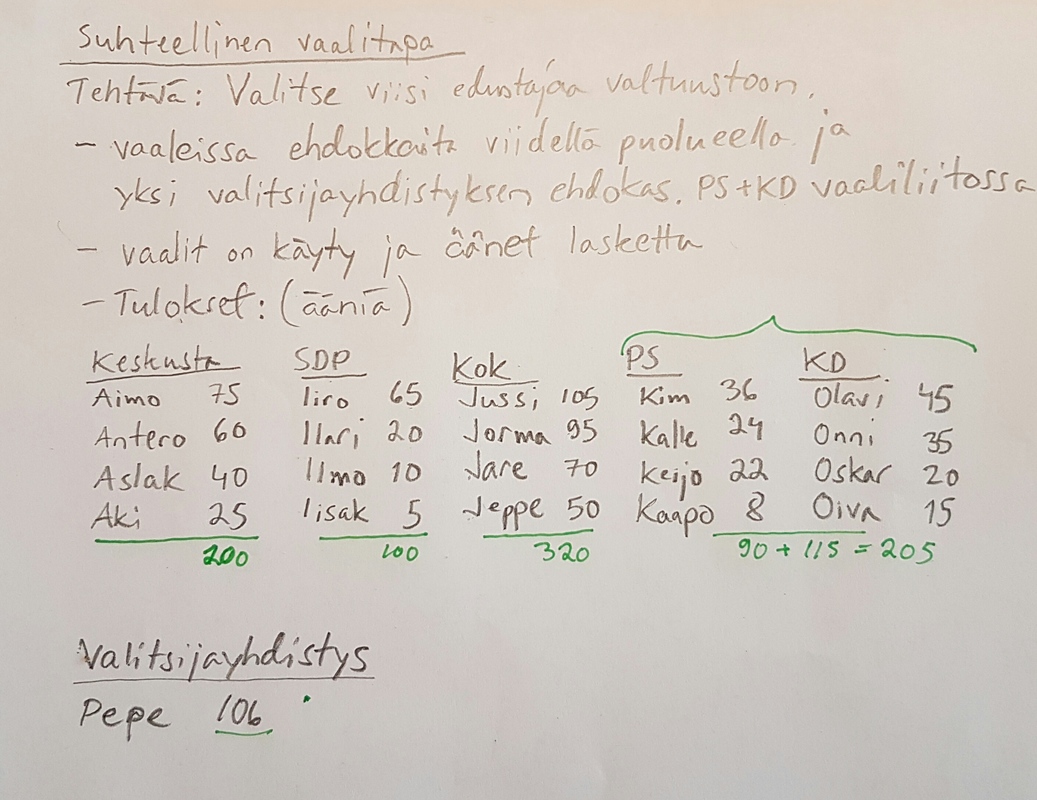 Suhteellinen vaalitapa
Tehtävä: Valitse viisi edustajaa valtuustoon.
- vaaleissa ehdokkaita viidellä puolueella ja
yksi valitsijayhdistyksen ehdokas. PS+KD vaaliliitossa
- vaalit on käyty ja äänet laskettu
- Tulokset: (ääniä)
Keskusta SDP Kok PS KD
Aimo 75 Iiro 65 Jussi 105 Kim 36 Olavi 45
Antero 60 Ilari 20 Jorma 95 Kalle 24 Onni 35
Aslak 40 Ilmo 10 Jare 70 Keijo 22 Oskar 20
Aki 25 Iisak 5 Jeppe 50 Kaapo 8 Oiva 15
200 100 320 90 + 115 = 205
Valitsijayhdistys
Pepe 106